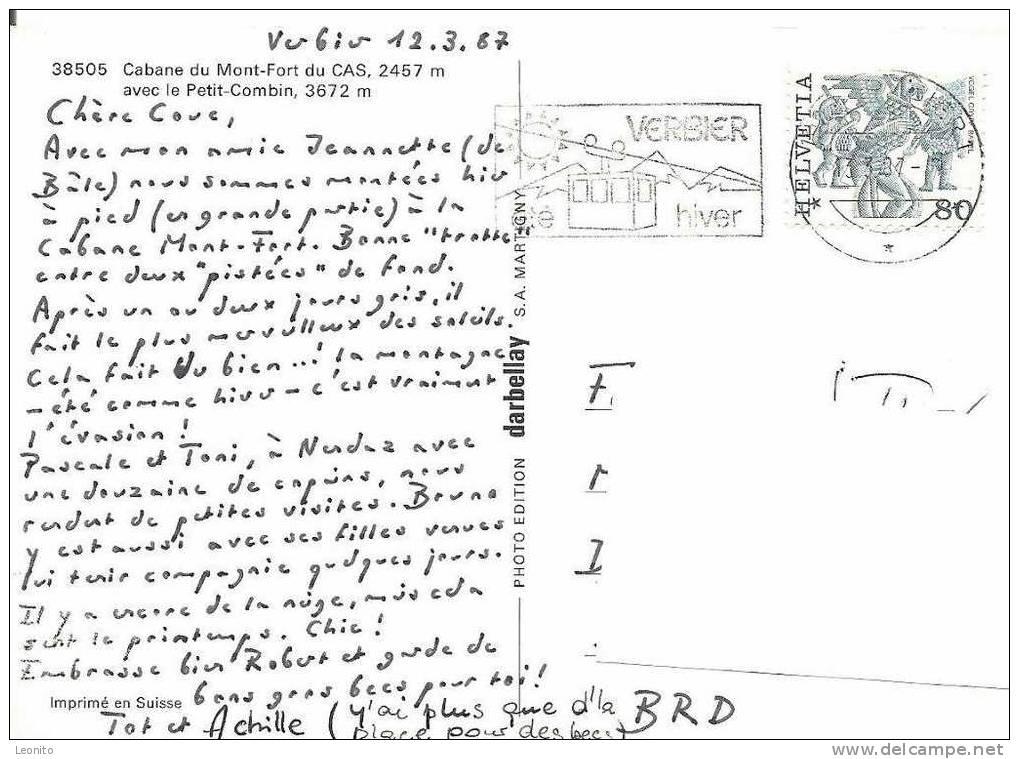 Verbier 12.3.87
38505 Cabane du Mont-Fort du CAS, 2457 m
avec le Petit-Combin, 3672 m
Chère Cove,
Avec mon amie Jeannette (de
Bâle) nous sommes montées hier
à pied (en grande partie) à la
Cabane Mont-Fort. Bonne "trotte
entre deux "pistées" de fond.
Après un ou deux jours gris, il
fait le plus merveilleux des soleils.
Cela fait du bien...! la montagne
- été comme hiver - c'est vraiment
l'évasion!
Pascale et Toni, à Nendaz avec
une douzaine de copains, nous
rendent de petites visites. Bruno
y est aussi avec ses filles venues
lui tenir compagnie quelques jours.
Il y a encore de la neige, mais cela
sent le printemps. Chic!
Embrasse bien Robert et garde de
bons gros becs pour toi!
Imprimé en Suisse
Tot et Achille (y'ai plus que d'la
place pour des becs)
PHOTO EDITION darbellay S.A. MARTIGNY
VERBIER
été hiver
HELVETIA
80
F.
I
BRD
Leonito